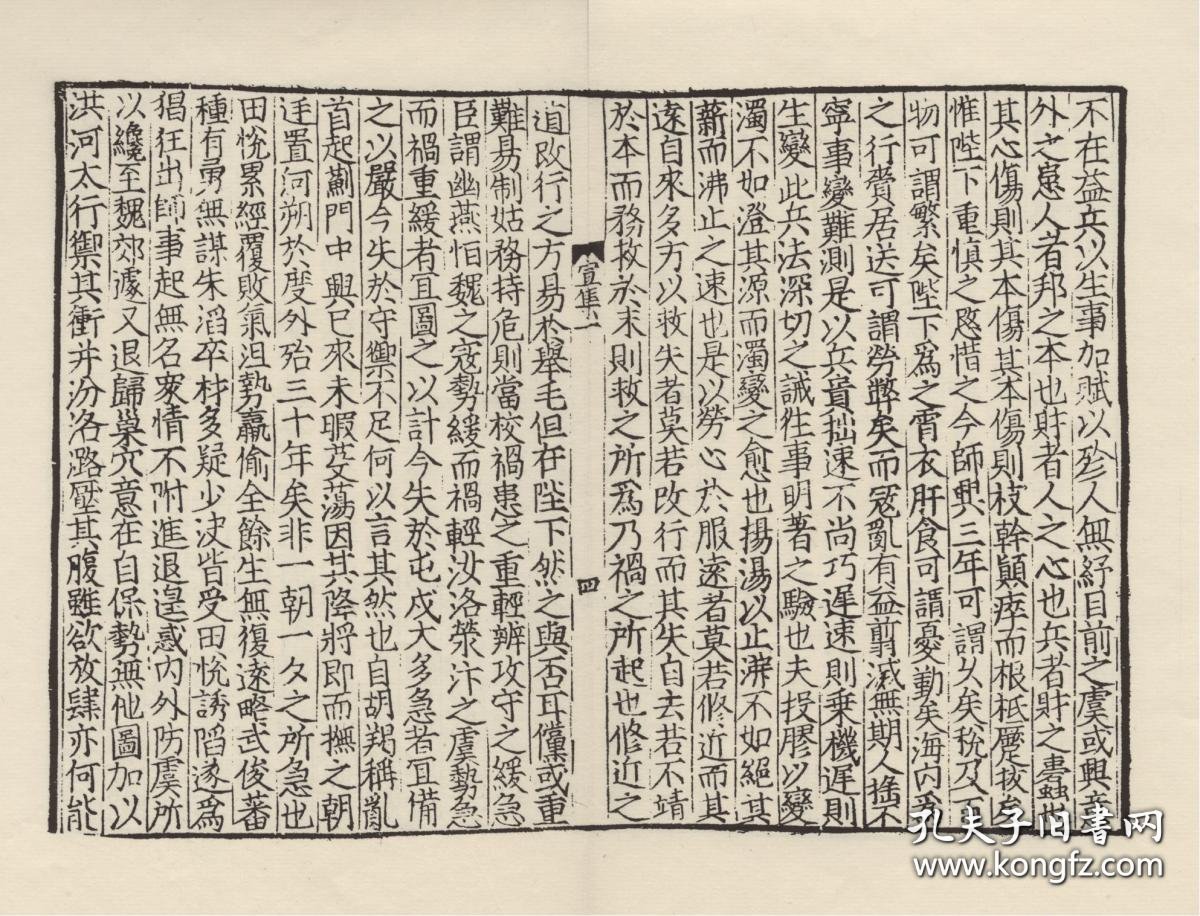 不在益兵以生事加賦以殄人無紓目前之虞或興意
外之患人者邦之本也財者人之心也兵者財之蠹也
其心傷則其本傷其本傷則枝幹顛瘁而根柢蹷拔矣
惟陛下重慎之愍惜之今師興三年可謂久矣稅及百
物可謂繁矣陛下為之宵衣旰食可謂憂勤矣海內為
之行賫居送可謂勞弊矣而寇亂有益翦滅無期人揺不
寧事變難測是以兵貴拙速不尚巧遲速則乗機遲則
生變此兵法深切之誡往事明著之驗也夫投膠以變
濁不如澄其源而濁變之愈也揚湯以止沸不如絕其
薪而沸止之速也是以勞心於服遠者莫若修近而其
遠自來多方以救失者莫若改行而其失自去若不靖
於本而務救於末則救之所為乃禍之所起也修近之
宣集一
四
道改行之方易於舉毛但在陛下然之與否耳儻或重
難易制姑務持危則當校禍患之重輕辨攻守之緩急
臣謂幽燕恒魏之寇勢緩而禍輕汝洛滎汴之虞勢急
而禍重緩者宜圖之以計今失於屯戍太多急者宜備
之以嚴今失於守禦不足何以言其然也自胡羯稱亂
首起薊門中興已來未暇芟蕩因其降將即而撫之朝
廷置河朔於度外殆三十年矣非一朝一夕之所急也
田悅累經覆敗氣沮勢羸偷全餘生無復遠略武俊蕃
種有勇無謀朱滔卒材多疑少決皆受田悅誘陷遂為
猖狂出師事起無名衆情不附進退遑惑內外防虞所
以纔至魏郊遽又退歸巢穴意在自保勢無他圖加以
洪河太行禦其衝并汾洛潞壓其腹雖欲放肆亦何能
孔夫子旧书网
www.kongfz.com